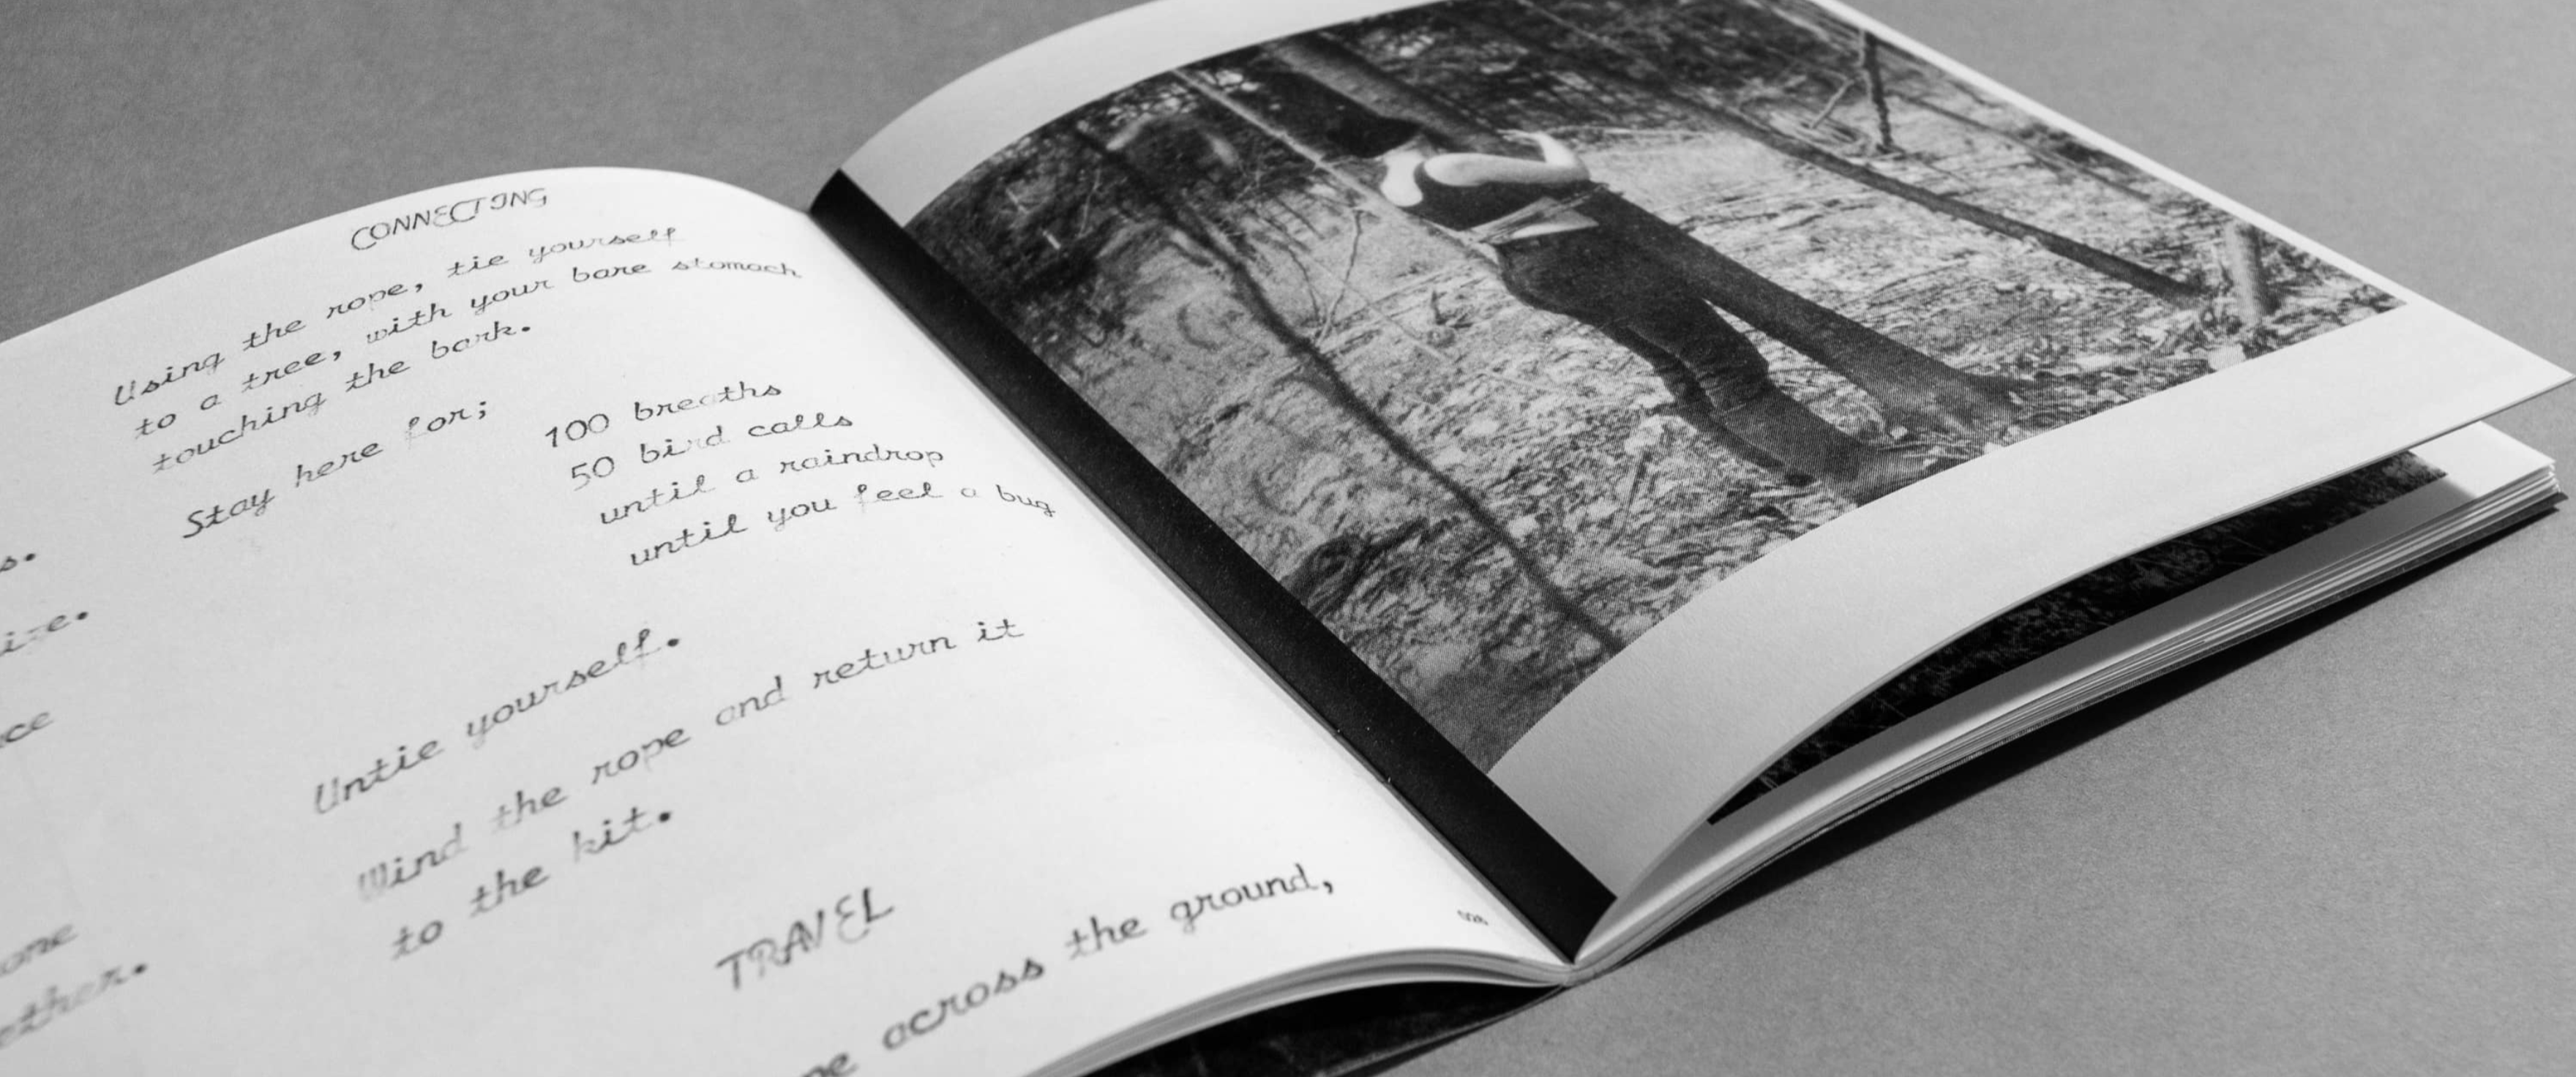 CONNECTING
Using the rope, tie yourself
to a tree, with your bare stomach
touching the bark.
Stay here for;
100 breaths
50 bird calls
until a raindrop
until you feel a bug
Untie yourself.
Wind the rope and return it
to the kit.
TRAVEL
across the ground,